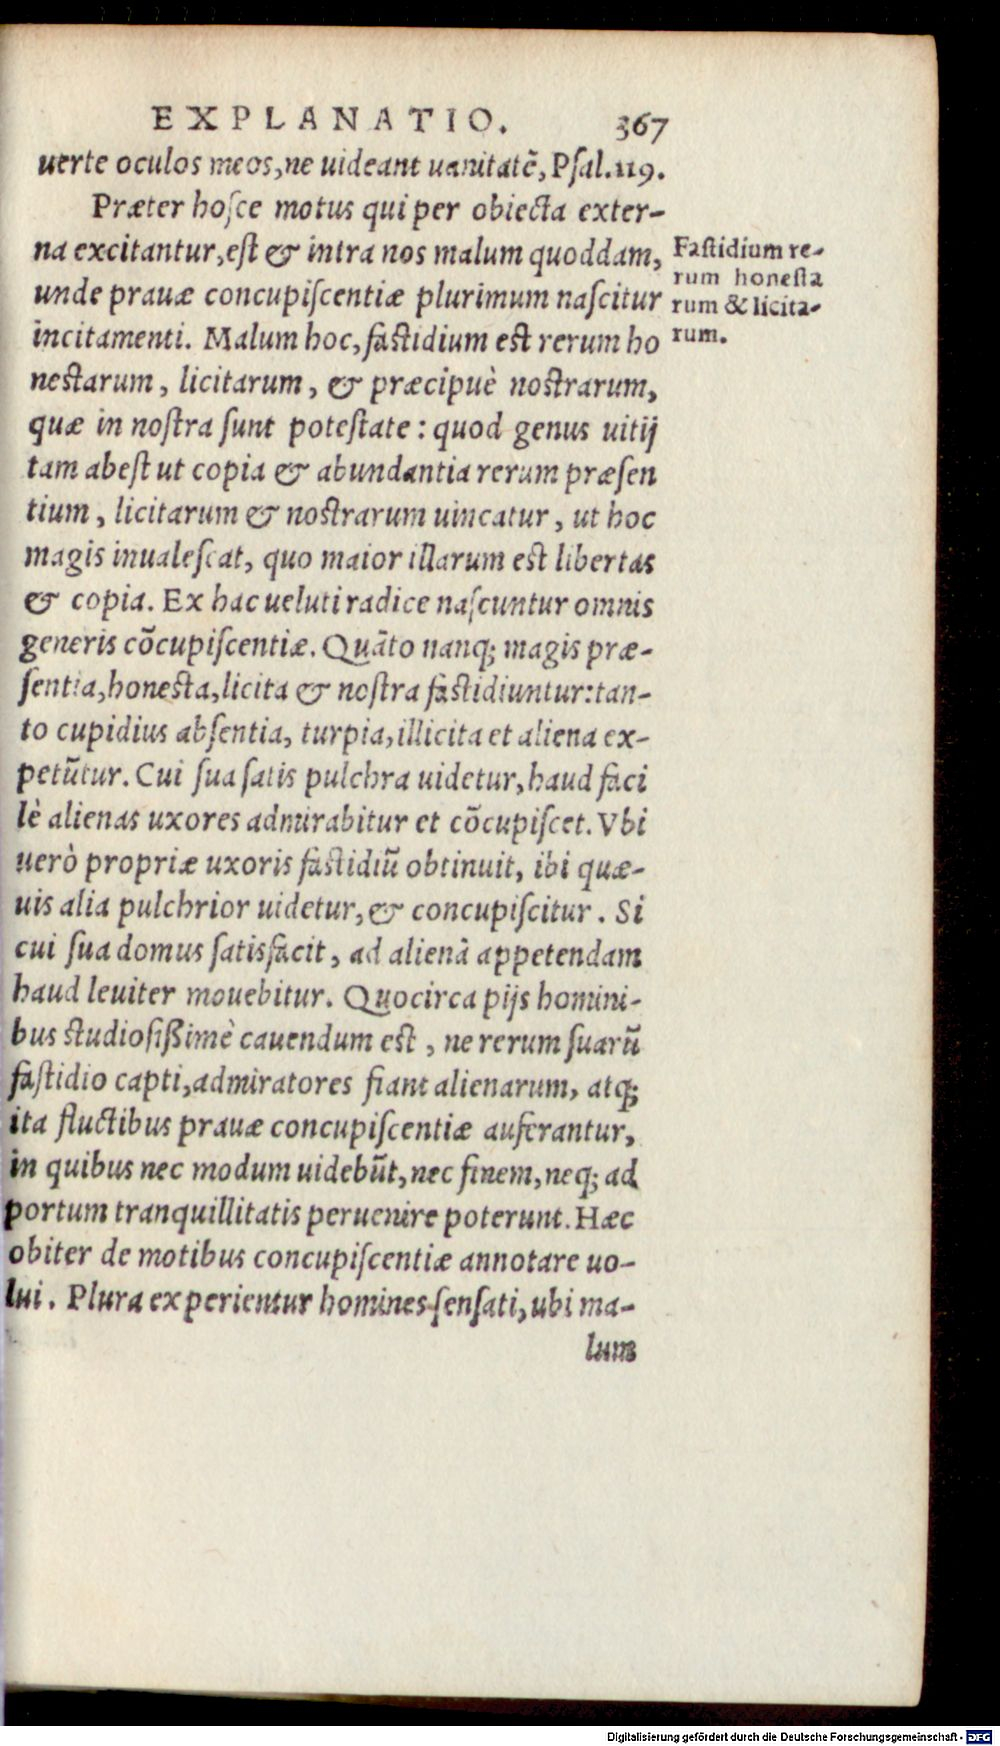 EXPLANATIO. 367
uerte oculos meos, ne uideant uanitatē, Psal.119.
Præter hosce motus qui per obiecta exter-
na excitantur, est & intra nos malum quoddam,
unde prauæ concupiscentiæ plurimum nascitur
incitamenti. Malum hoc, fastidium est rerum ho
nestarum, licitarum, & præcipuè nostrarum,
quæ in nostra sunt potestate: quod genus uitij
tam abest ut copia & abundantia rerum præsen
tium, licitarum & nostrarum uincatur, ut hoc
magis inualescat, quo maior illarum est libertas
& copia. Ex hac ueluti radice nascuntur omnis
generis cōcupiscentiæ. Quāto nanq; magis præ-
sentia, honesta, licita & nostra fastidiuntur: tan-
to cupidius absentia, turpia, illicita et aliena ex-
petūtur. Cui sua satis pulchra uidetur, haud faci
lè alienas uxores admirabitur et cōcupiscet. Vbi
uerò propriæ uxoris fastidiū obtinuit, ibi quæ-
uis alia pulchrior uidetur, & concupiscitur. Si
cui sua domus satisfacit, ad alienā appetendam
haud leuiter mouebitur. Quocirca pijs homini-
bus studiosißimè cauendum est, ne rerum suarū
fastidio capti, admiratores fiant alienarum, atq;
ita fluctibus prauæ concupiscentiæ auferantur,
in quibus nec modum uidebūt, nec finem, neq; ad
portum tranquillitatis peruenire poterunt. Hæc
obiter de motibus concupiscentiæ annotare uo-
lui. Plura experientur homines sensati, ubi ma-
lum
Fastidium re-
rum honesta
rum & licita-
rum.
Digitalisierung gefördert durch die Deutsche Forschungsgemeinschaft - DFG